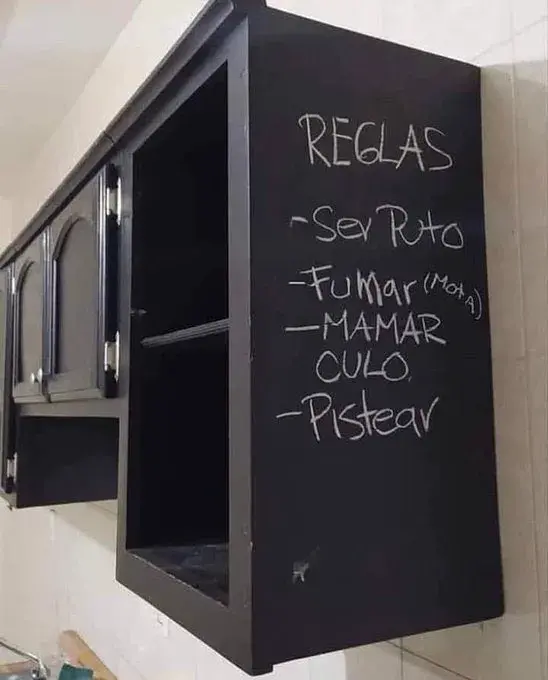 REGLAS
-Ser Puto
-Fumar (Mota)
-MAMAR
CULO.
-Pistear